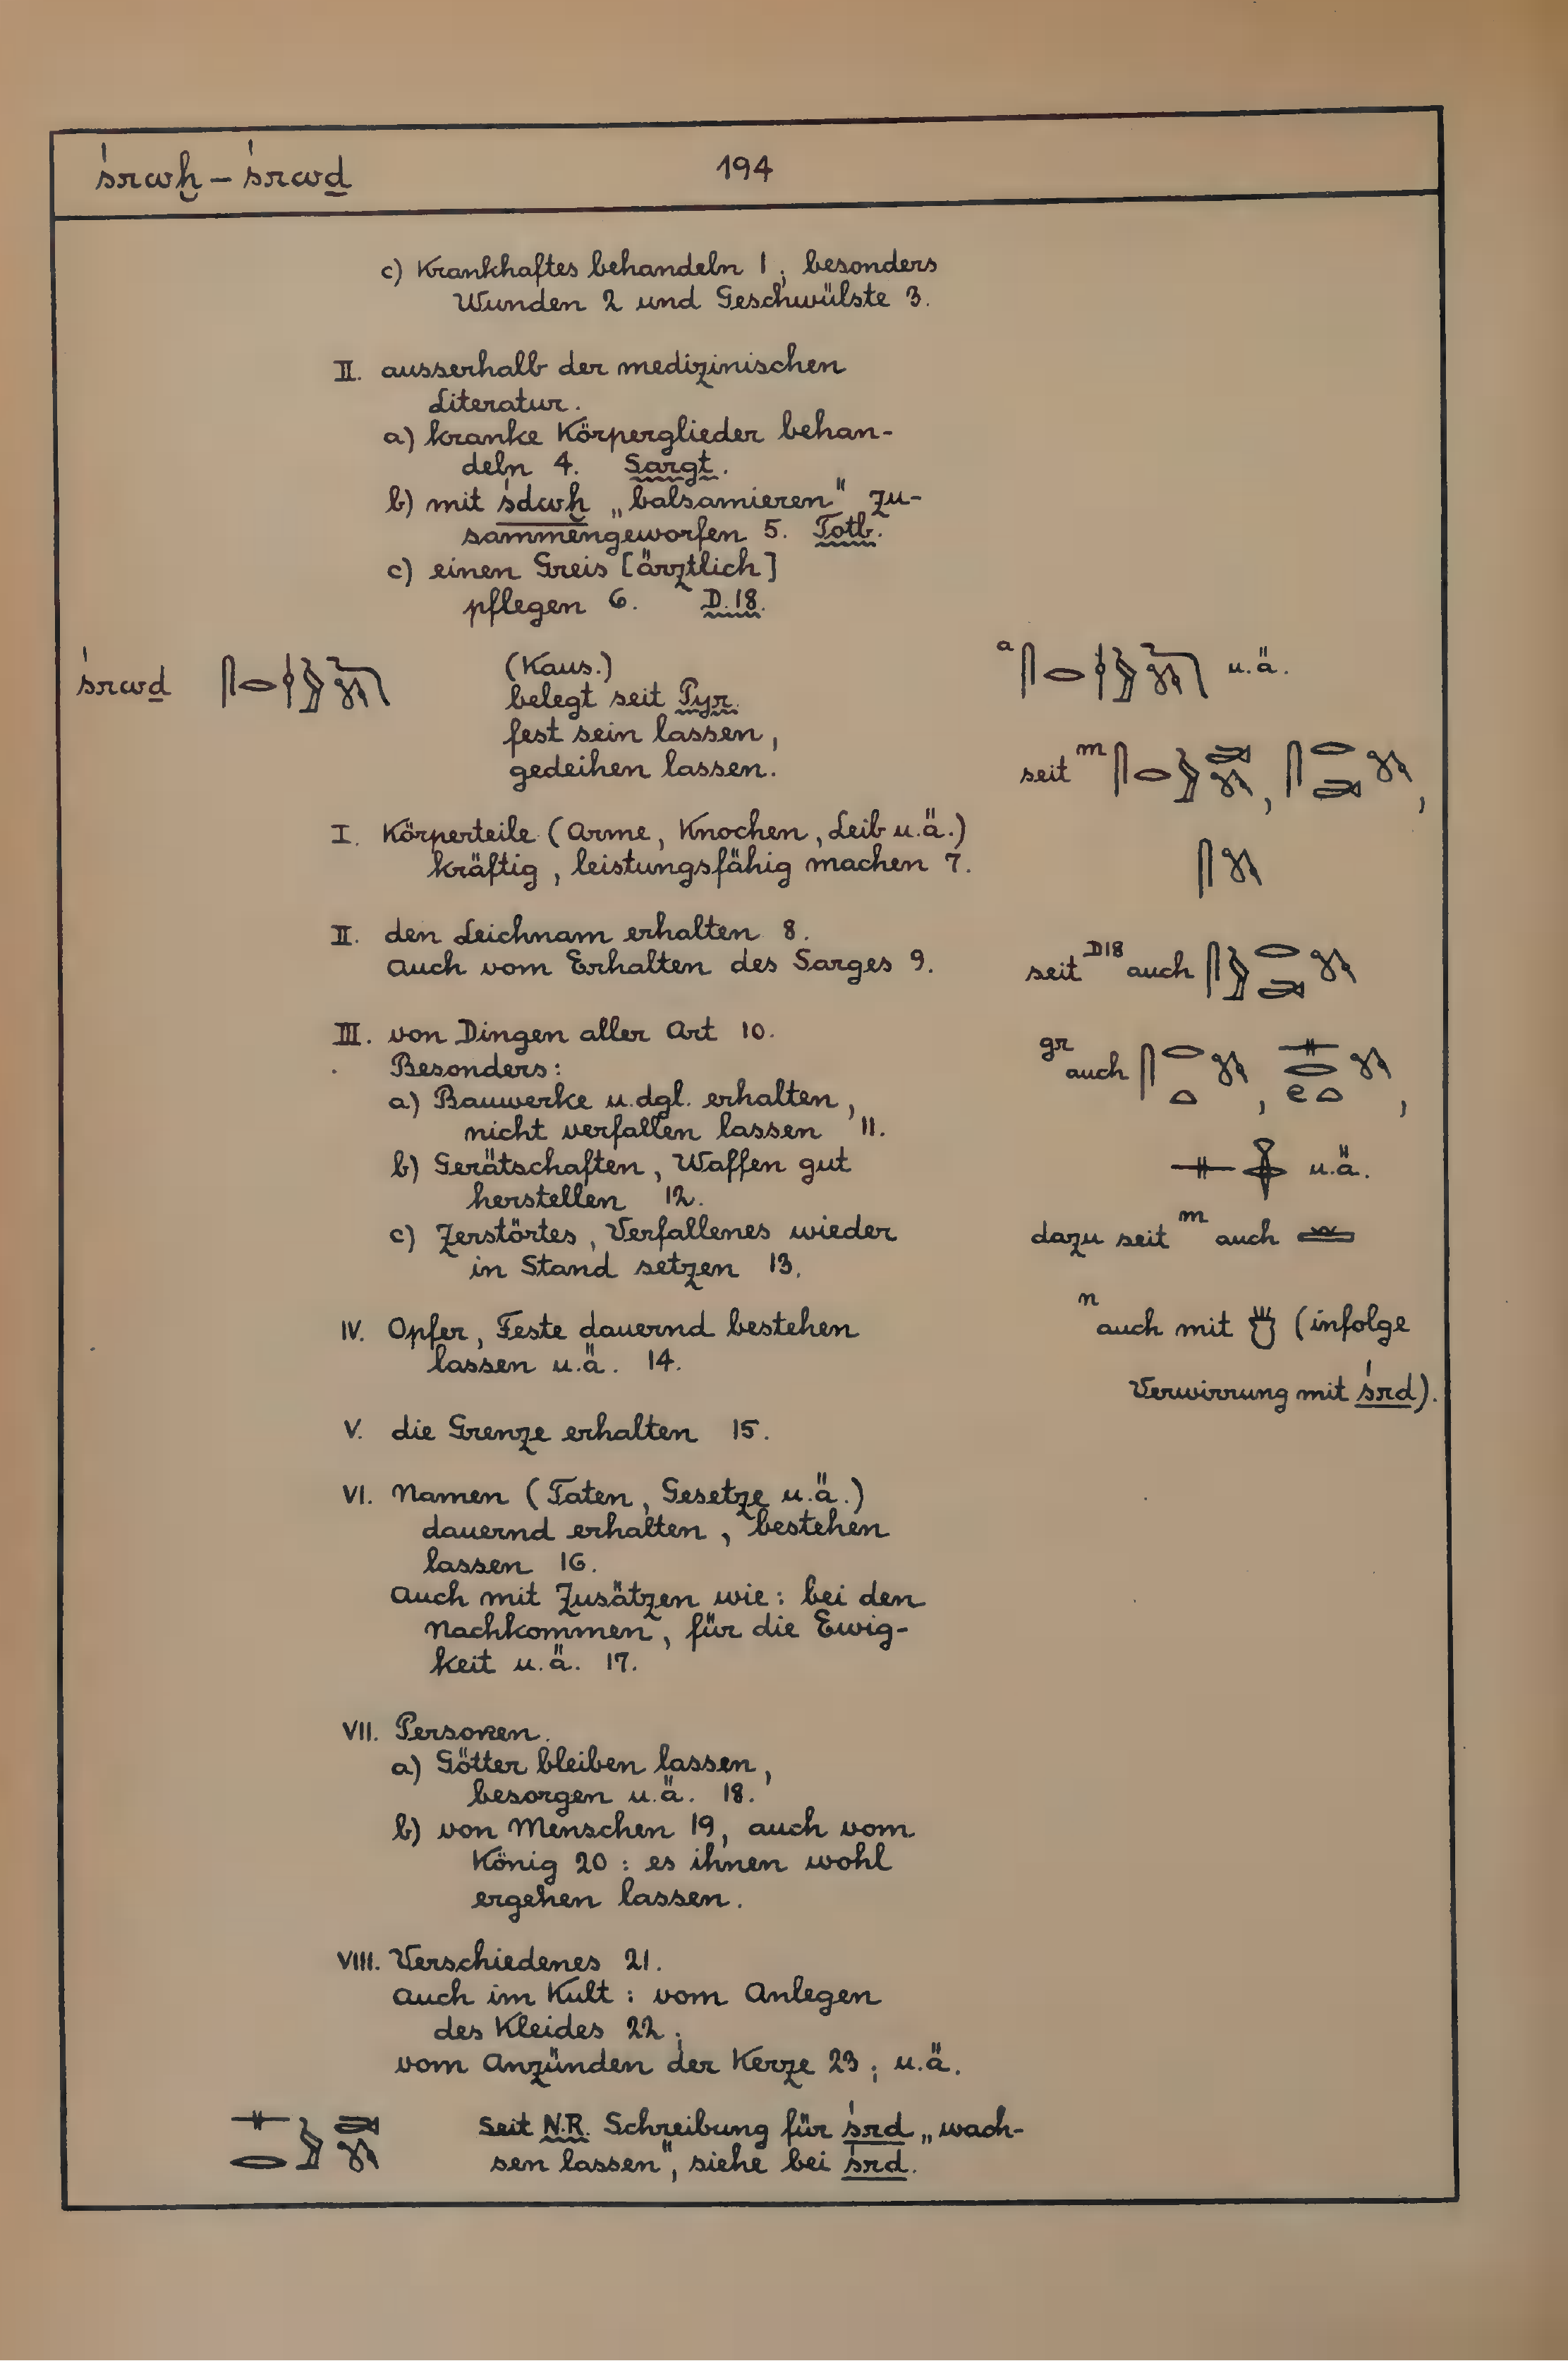 śrwḫ – śrwḏ
194
c) Krankhaftes behandeln 1; besonders
Wunden 2 und Geschwülste 3.
II. ausserhalb der medizinischen
Literatur.
a) kranke Körperglieder behan-
deln 4. Sargt.
b) mit śdwḫ „balsamieren" zu-
sammengeworfen 5. Totb.
c) einen Greis [ärztlich]
pflegen 6. D.18.
śrwḏ
(Kaus.)
belegt seit Pyr.
fest sein lassen,
gedeihen lassen.
I. Körperteile (Arme, Knochen, Leib u.ä.)
kräftig, leistungsfähig machen 7.
II. den Leichnam erhalten 8.
Auch vom Erhalten des Sarges 9.
III. von Dingen aller Art 10.
Besonders:
a) Bauwerke u.dgl. erhalten,
nicht verfallen lassen 11.
b) Gerätschaften, Waffen gut
herstellen 12.
c) Zerstörtes, Verfallenes wieder
in Stand setzen 13.
IV. Opfer, Feste dauernd bestehen
lassen u.ä. 14.
V. die Grenze erhalten 15.
VI. Namen (Taten, Gesetze u.ä.)
dauernd erhalten, bestehen
lassen 16.
Auch mit Zusätzen wie: bei den
Nachkommen, für die Ewig-
keit u.ä. 17.
VII. Personen.
a) Götter bleiben lassen,
besorgen u.ä. 18.
b) von Menschen 19, auch vom
König 20: es ihnen wohl
ergehen lassen.
VIII. Verschiedenes 21.
Auch im Kult: vom Anlegen
des Kleides 22;
vom Anzünden der Kerze 23; u.ä.
Seit N.R. Schreibung für śrd „wach-
sen lassen", siehe bei śrd.
a u.ä.
seit m , ,
seit D18 auch
gr auch , ,
u.ä.
dazu seit m auch
n auch mit (infolge
Verwirrung mit śrd).